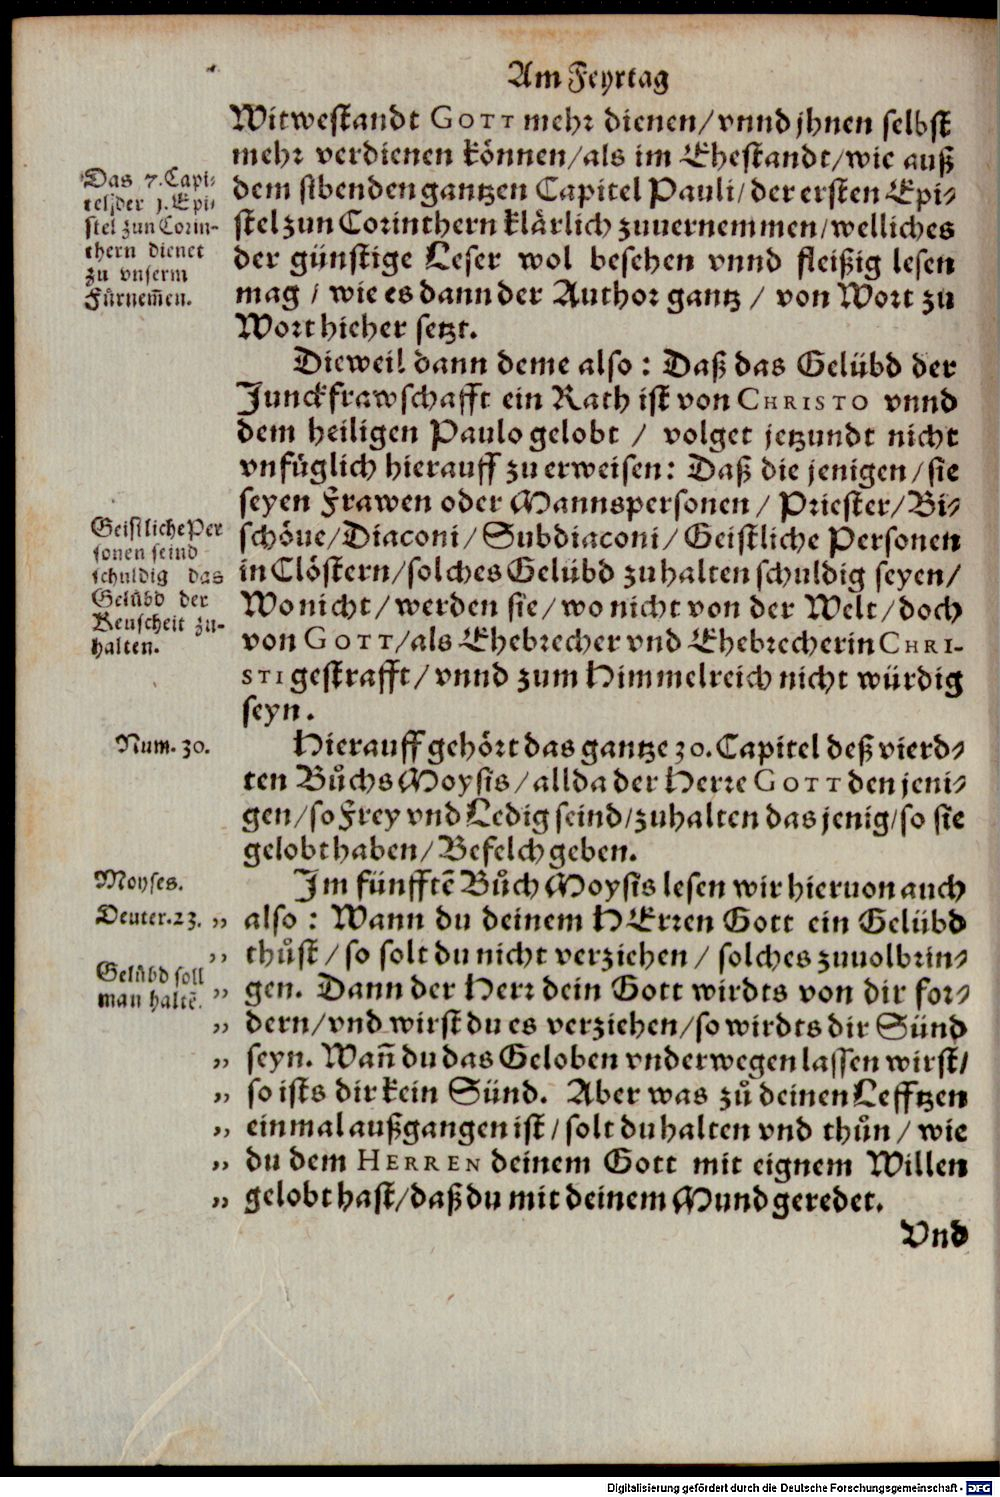 Am Feyrtag
Witwestandt GOTT mehr dienen/vnnd jhnen selbst
mehr verdienen können/als im Ehestandt/wie auß
dem sibenden gantzen Capitel Pauli/der ersten Epi-
stel zun Corinthern klärlich zuuernemmen/welliches
der günstige Leser wol besehen vnnd fleißig lesen
mag / wie es dann der Author gantz / von Wort zu
Wort hieher setzt.
Das 7. Capi-
tel/der 1. Epi-
stel zun Corin-
thern dienet
zu vnserm
Fürnem̃en.
Dieweil dann deme also : Daß das Gelübd der
Junckfrawschafft ein Rath ist von CHRISTO vnnd
dem heiligen Paulo gelobt / volget jetzundt nicht
vnfüglich hierauff zu erweisen: Daß die jenigen/sie
seyen Frawen oder Mannspersonen / Priester/Bi-
schöue/Diaconi/Subdiaconi/Geistliche Personen
in Clöstern/solches Gelübd zu halten schuldig seyen/
Wo nicht/werden sie/wo nicht von der Welt/doch
von GOTT/als Ehebrecher vnd Ehebrecherin CHRI-
STI gestrafft/vnnd zum Himmelreich nicht würdig
seyn.
Geistliche Per
sonen seind
schuldig das
Gelübd der
Keuscheit zu-
halten.
Hierauff gehört das gantze 30. Capitel deß vierd-
ten Bůchs Moysis/allda der Herre GOTT den jeni-
gen/so Frey vnd Ledig seind/zuhalten das jenig/so sie
gelobt haben/Befelch geben.
Num. 30.
Im fünfftẽ Bůch Moysis lesen wir hieruon auch
also : Wann du deinem HErren Gott ein Gelübd
thůst / so solt du nicht verziehen / solches zuuolbrin-
gen. Dann der Herr dein Gott wirdts von dir for-
dern/vnd wirst du es verziehen/so wirdts dir Sünd
seyn. Wañ du das Geloben vnderwegen lassen wirst/
so ists dir kein Sünd. Aber was zů deinen Lefftzen
einmal außgangen ist/solt du halten vnd thůn/wie
du dem HERREN deinem Gott mit eignem Willen
gelobt hast/daß du mit deinem Mund geredet.
Moyses.
Deuter. 23. „
„
Gelübd soll
man haltẽ. „
„
„
„
„
„
„
Vnd
Digitalisierung gefördert durch die Deutsche Forschungsgemeinschaft - DFG